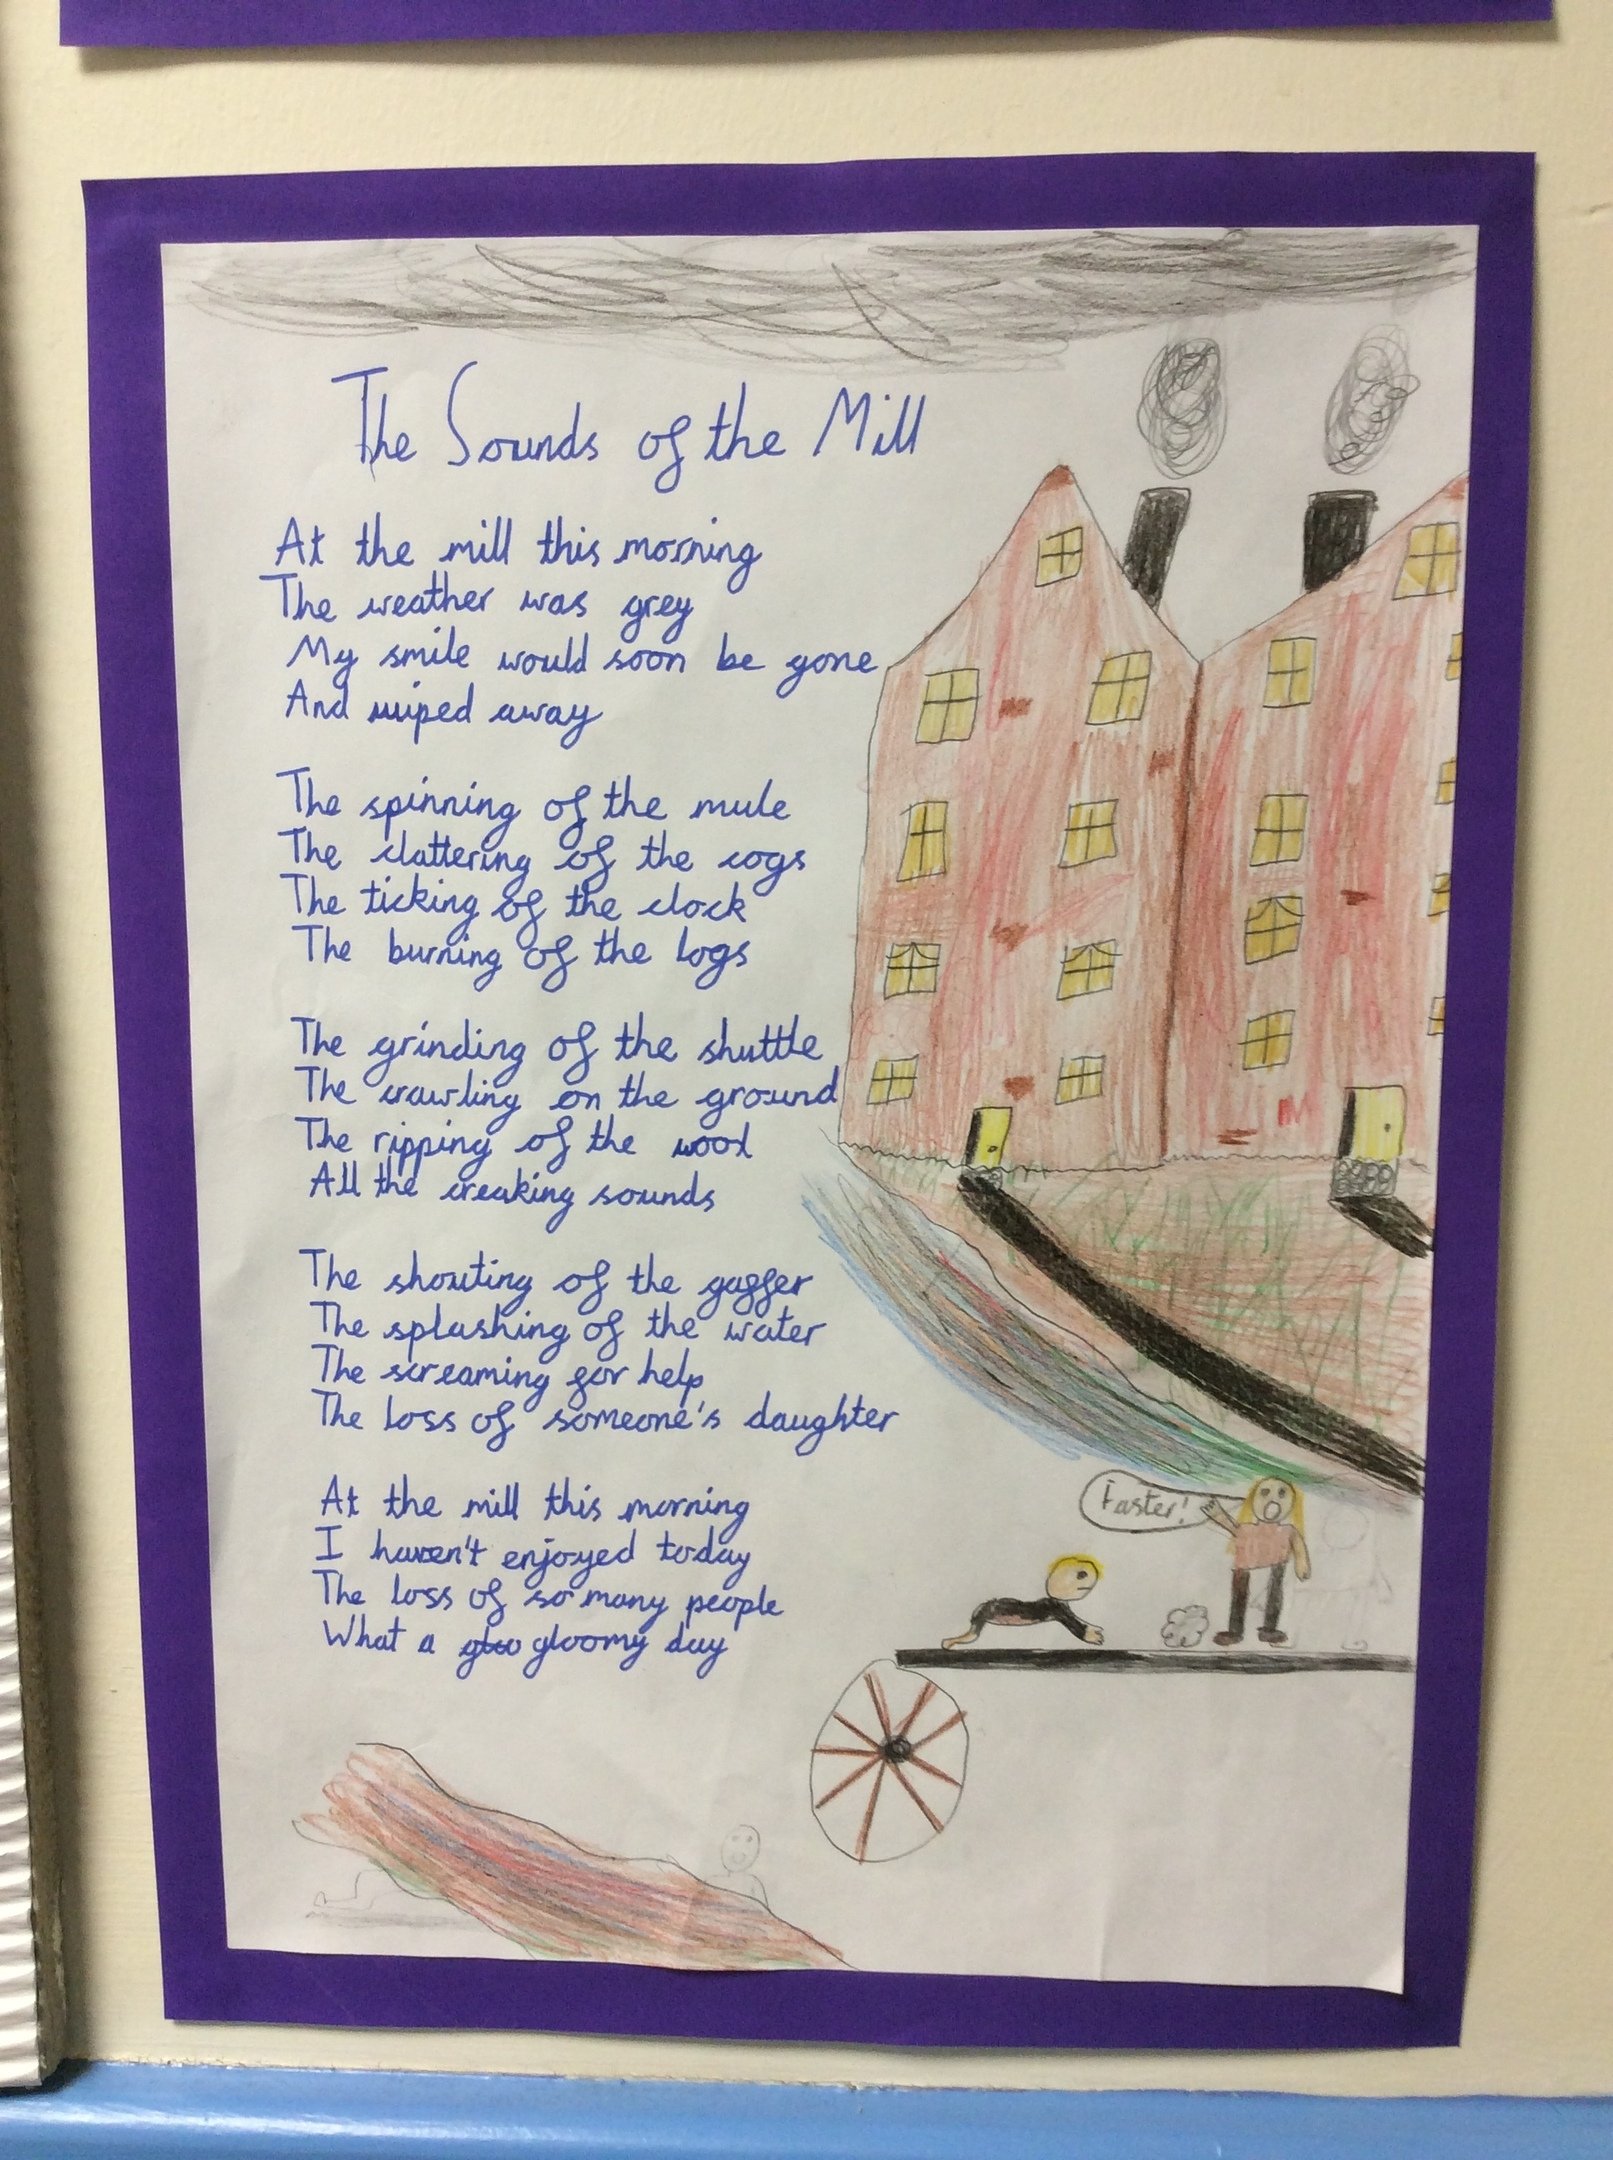 The Sounds of the Mill
At the mill this morning
The weather was grey
My smile would soon be gone
And wiped away
The spinning of the mule
The clattering of the cogs
The ticking of the clock
The burning of the logs
The grinding of the shuttle
The crawling on the ground
The ripping of the wool
All the creaking sounds
The shouting of the gaffer
The splashing of the water
The screaming for help
The loss of someone's daughter
At the mill this morning
I haven't enjoyed today
The loss of so many people
What a gloomy day
Faster!